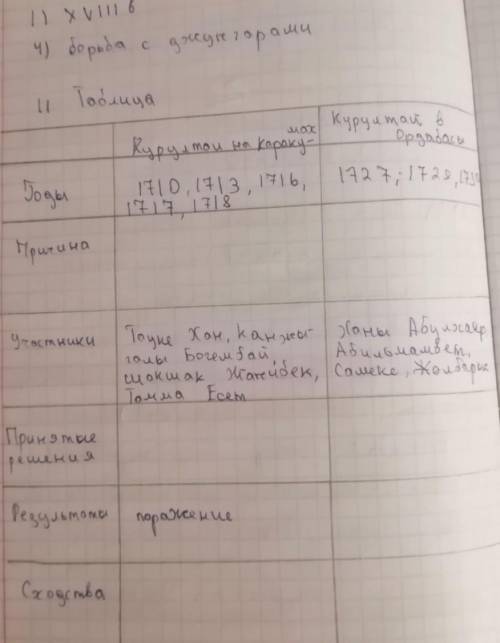 1) XVIII в
4) борьба с джунгарами
II Таблица
Курултаи на Караку-
мах
Курултай в
Ордабасы
Годы
1710, 1713, 1716,
1717, 1718
1727; 1728,
Причина
Участники
Тауке Хан, Канжы-
галы Богембай,
Шакшак Жанибек,
Тамма Есет
Ханы Абулхаир
Абильмамбет,
Самеке, Жолбарыс
Принятые
решения
Результаты
поражение
Сходства